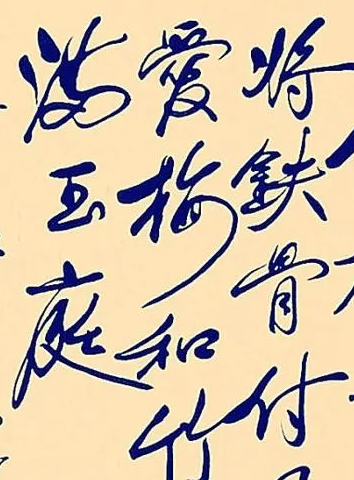 将鉄骨付
愛梅和竹
满玉庭